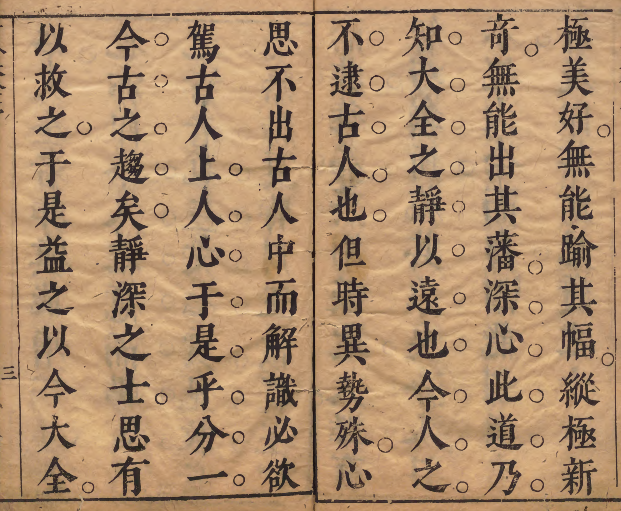 極美好無能踰其幅縱極新
竒無能出其藩深心此道乃
知大全之靜以遠也今人之
不逮古人也但時異勢殊心
思不出古人中而解識必欲
駕古人上人心于是乎分一
今古之趨矣靜深之士思有
以救之于是益之以今大全
三